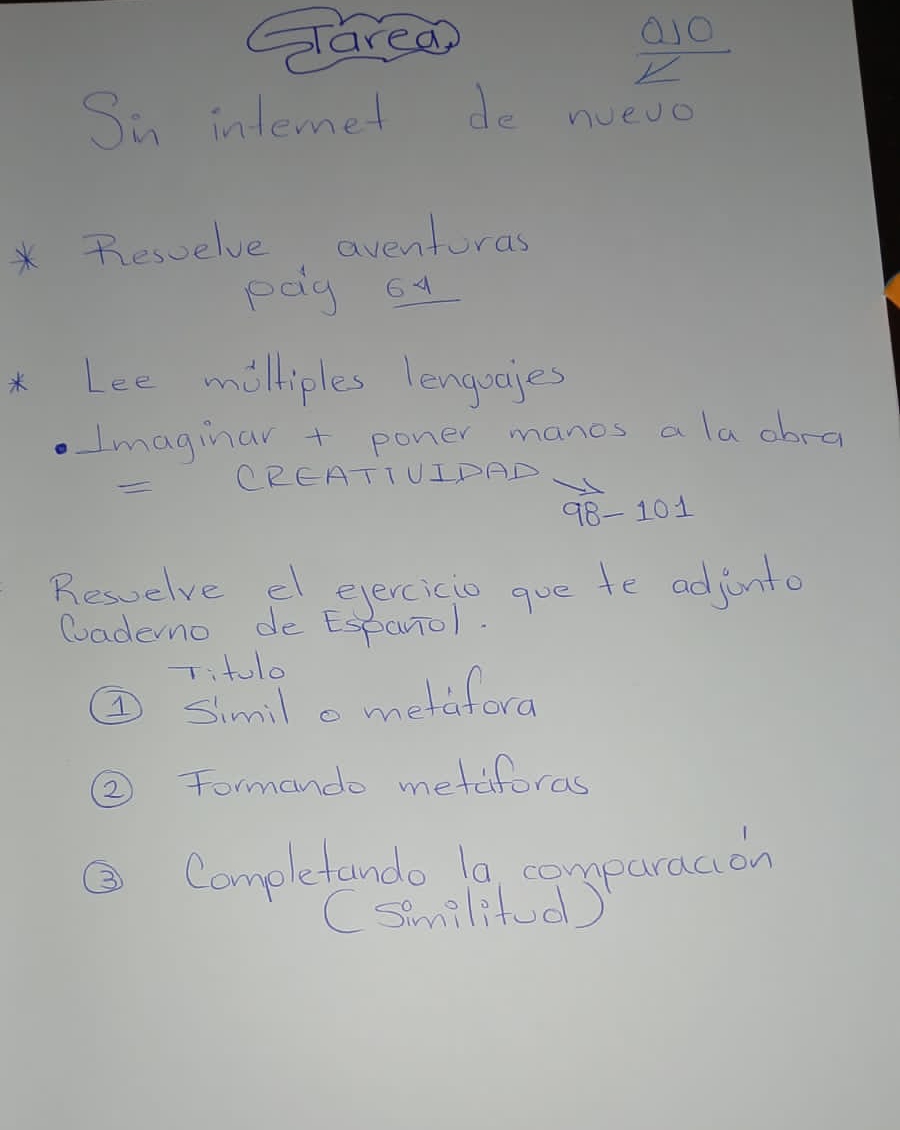 Tarea
OJO
Sin internet de nuevo
* Resuelve aventuras
pág 64
* Lee múltiples lenguajes
• Imaginar + poner manos a la obra
= CREATIVIDAD
98-101
Resuelve el ejercicio que te adjunto
Cuaderno de Español.
Título
① Símil o metáfora
② Formando metáforas
③ Completando la comparación
(similitud)